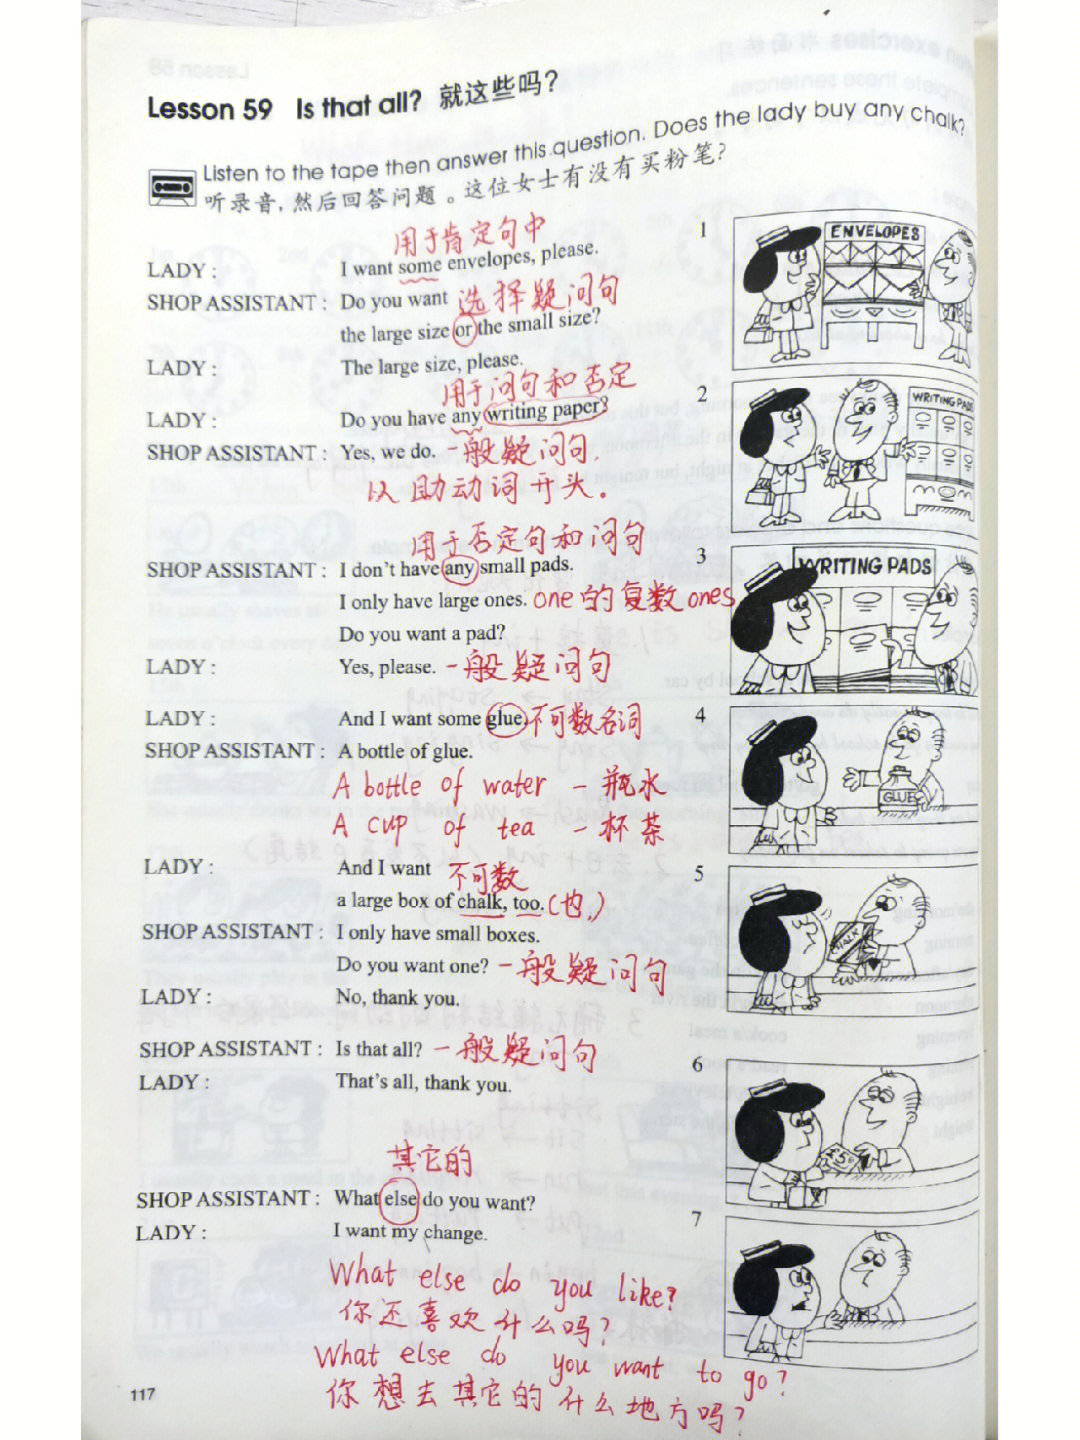 Lesson 59 Is that all? 就这些吗?
Listen to the tape then answer this question. Does the lady buy any chalk?
听录音,然后回答问题。这位女士有没有买粉笔?
用于肯定句中
LADY : I want some envelopes, please.
SHOP ASSISTANT : Do you want 选择疑问句
the large size or the small size?
LADY : The large size, please.
用于问句和否定
LADY : Do you have any writing paper?
SHOP ASSISTANT : Yes, we do. 一般疑问句.
以助动词开头。
用于否定句和问句
SHOP ASSISTANT : I don't have any small pads.
I only have large ones. one的复数ones
Do you want a pad?
LADY : Yes, please. 一般疑问句
LADY : And I want some glue. 不可数名词
SHOP ASSISTANT : A bottle of glue.
A bottle of water 一瓶水
A cup of tea 一杯茶
LADY : And I want 不可数
a large box of chalk, too. (也,)
SHOP ASSISTANT : I only have small boxes.
Do you want one? 一般疑问句
LADY : No, thank you.
SHOP ASSISTANT : Is that all? 一般疑问句
LADY : That's all, thank you.
其它的
SHOP ASSISTANT : What else do you want?
LADY : I want my change.
What else do you like?
你还喜欢什么吗?
What else do you want to go?
你想去其它的什么地方吗?
117
1
ENVELOPES
2
WRITING PADS
3
WRITING PADS
4
GLUE
5
CHALK
6
£5
7